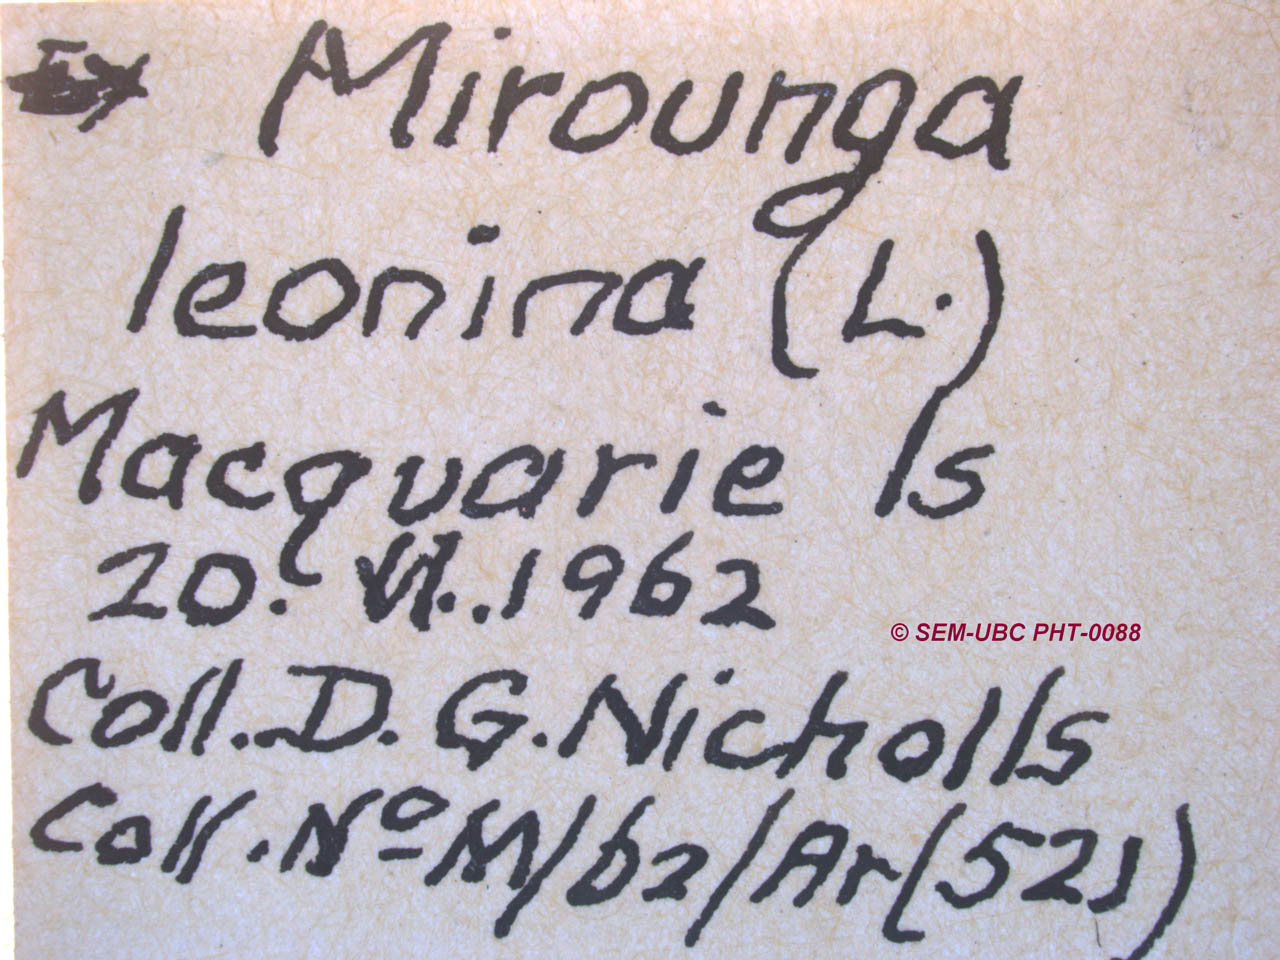 Ex Mirounga
leonina (L.)
Macquarie Is
20. VI..1962
© SEM-UBC PHT-0088
Coll. D. G. Nicholls
Coll. Nº M/62/Ar(521)